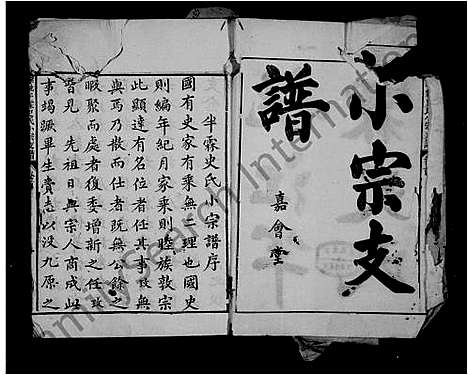 小宗支
譜
嘉會堂
半霖史氏小宗譜序
國有史家有乘無二理也國史
則編年紀月家乘則睦族敦宗
此顯達有名位者任其事故無
與焉乃散而仕者既無公餘之
暇聚而處者復委增新之任故
昔見 先祖日與宗人商成此
事竭蹶畢生賫志以没九原之